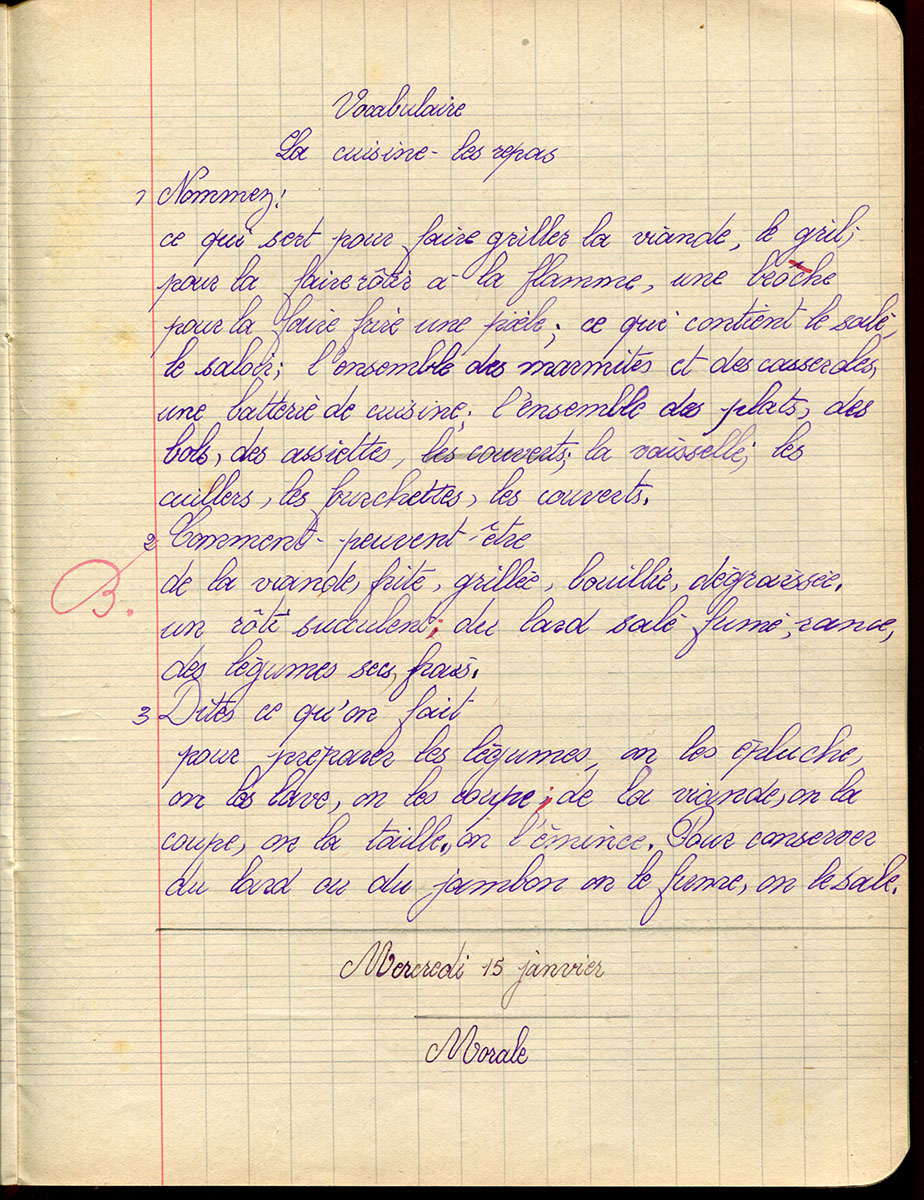 Vocabulaire
La cuisine - les repas
1 Nommez :
ce qui sert pour faire griller la viande, le gril ;
pour la faire rôtir à la flamme, une brôche
pour la faire frire une pièle ; ce qui contient le salé,
le saloir ; l'ensemble des marmites et des casseroles,
une batterie de cuisine ; l'ensemble des plats, des
bols, des assiettes, les couverts ; la vaisselle ; les
cuillers, les furchettes, les couverts.
2 Comment - peuvent - être
B.
de la viande, frite, grillée, bouillie, dégraissée.
un rôti succulent ; du lard salé fumé, rance,
des légumes secs, frais.
3 Dites ce qu'on fait
pour préparer les légumes, on les épluche,
on les lave, on les coupe ; de la viande, on la
coupe, on la taille, on l'émince. Pour conserver
du lard ou du jambon on le fume, on le sale.
Mercredi 15 janvier
Morale